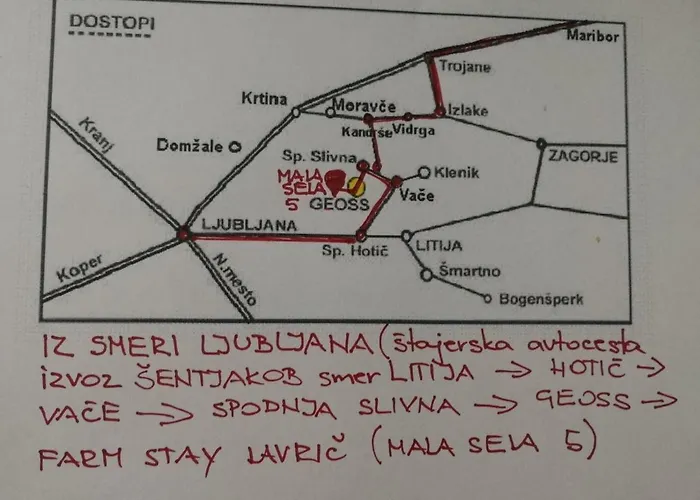 DOSTOPI
Maribor
Trojane
Krtina
Moravče
Izlake
Kranj
Kandrše
Vidrga
Domžale
ZAGORJE
Sp. Slivna
MALA
SELA
5
Klenik
GEOSS
Vače
LJUBLJANA
Sp. Hotič
LITIJA
Koper
N.mesto
Šmartno
Bogenšperk
IZ SMERI LJUBLJANA (štajerska autocesta
izvoz ŠENTJAKOB smer LITIJA → HOTIČ →
VAČE → SPODNJA SLIVNA → GEOSS →
FARM STAY LAVRIČ (MALA SELA 5)